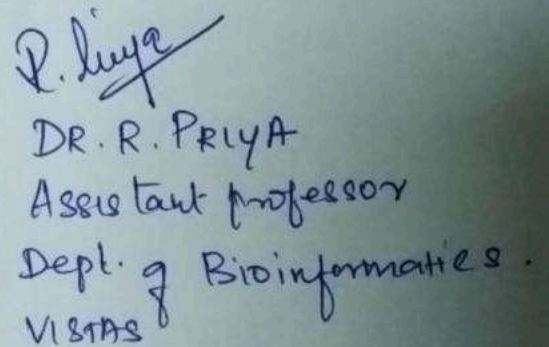 R. Priya
DR. R. PRIYA
Assistant professor
Dept. of Bioinformatics.
VISTAS